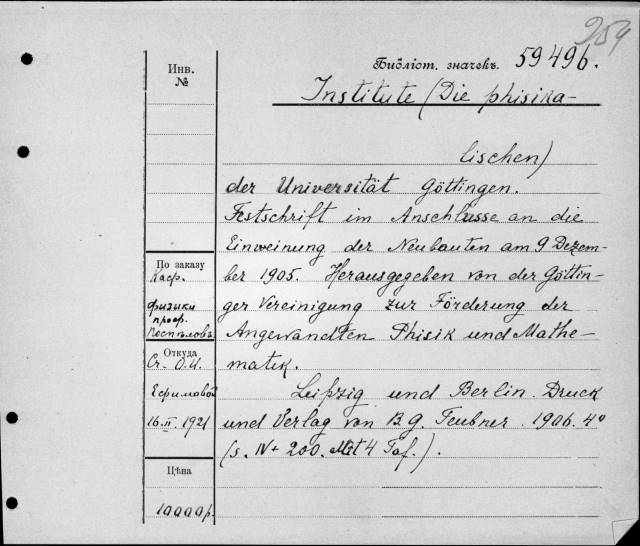 254
Библіот. значекъ. 59496.
Инв.
№
Institute (Die phisika-
lischen)
der Universität Göttingen.
Festschrift im Anschlusse an die
Einweinung der Neubauten am 9 Dezem-
ber 1905. Herausgegeben von der Götting-
ger Vereinigung zur Förderung der
Angewandten Phisik und Mathe-
matik.
Leipzig und Berlin. Druck
und Verlag von B. G. Teubner. 1906. 4°
(s. IV + 200. Mit 4 Taf.).
По заказу
Каѳ.
физики
проф.
Поспѣловъ
Откуда
От О.И.
Ефимовой
16.II.1921
Цѣна
10000р.